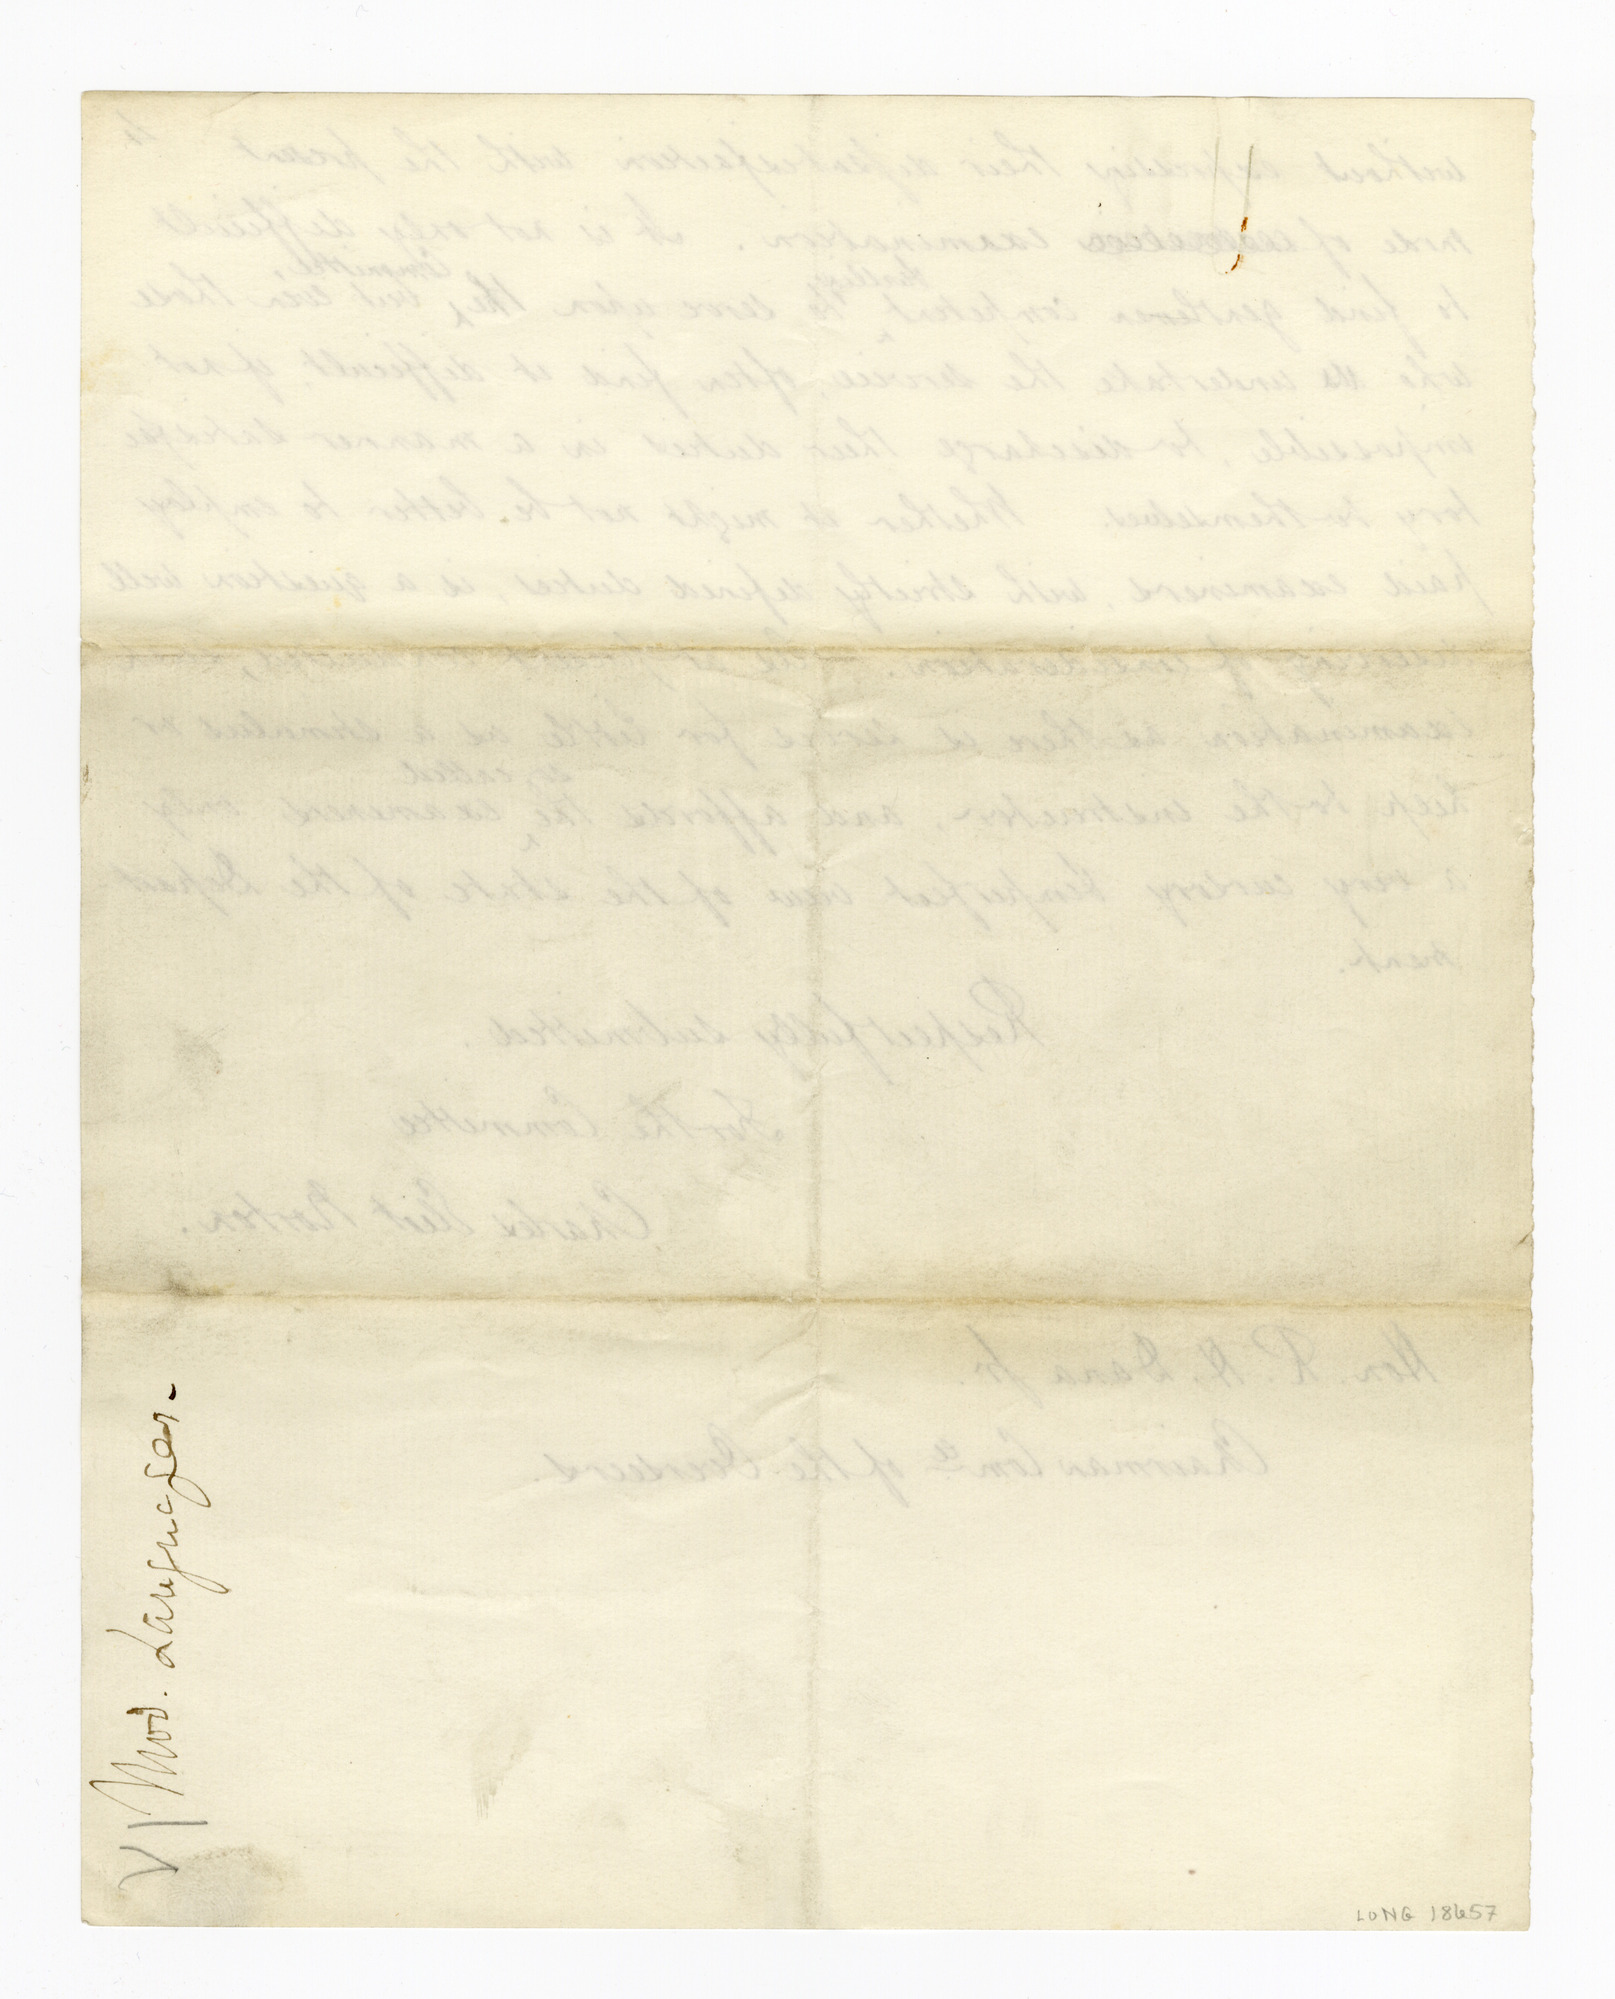 V | Mod. Languages.
LONG 18657
4
without expressing their dissatisfaction with the present
mode of examination. It is not only difficult
to find gentlemen competent & willing to serve upon the Committee, but even those
who undertake the service, often find it difficult, if not
impossible, to discharge their duties in a manner satisfac
tory to themselves. Whether it might not be better to employ
paid examiners, with strictly defined duties, is a question well
deserving of consideration.
examination as there is serves for little as a stimulus or
help to the instructor, and affords the so called examiners only
a very cursory & imperfect view of the state of the Depart
ment.
Respectfully submitted.
For the Committee
Charles Eliot Norton.
Hon. R. H. Dana Jr.
Chairman Com^ee of the Overseers.